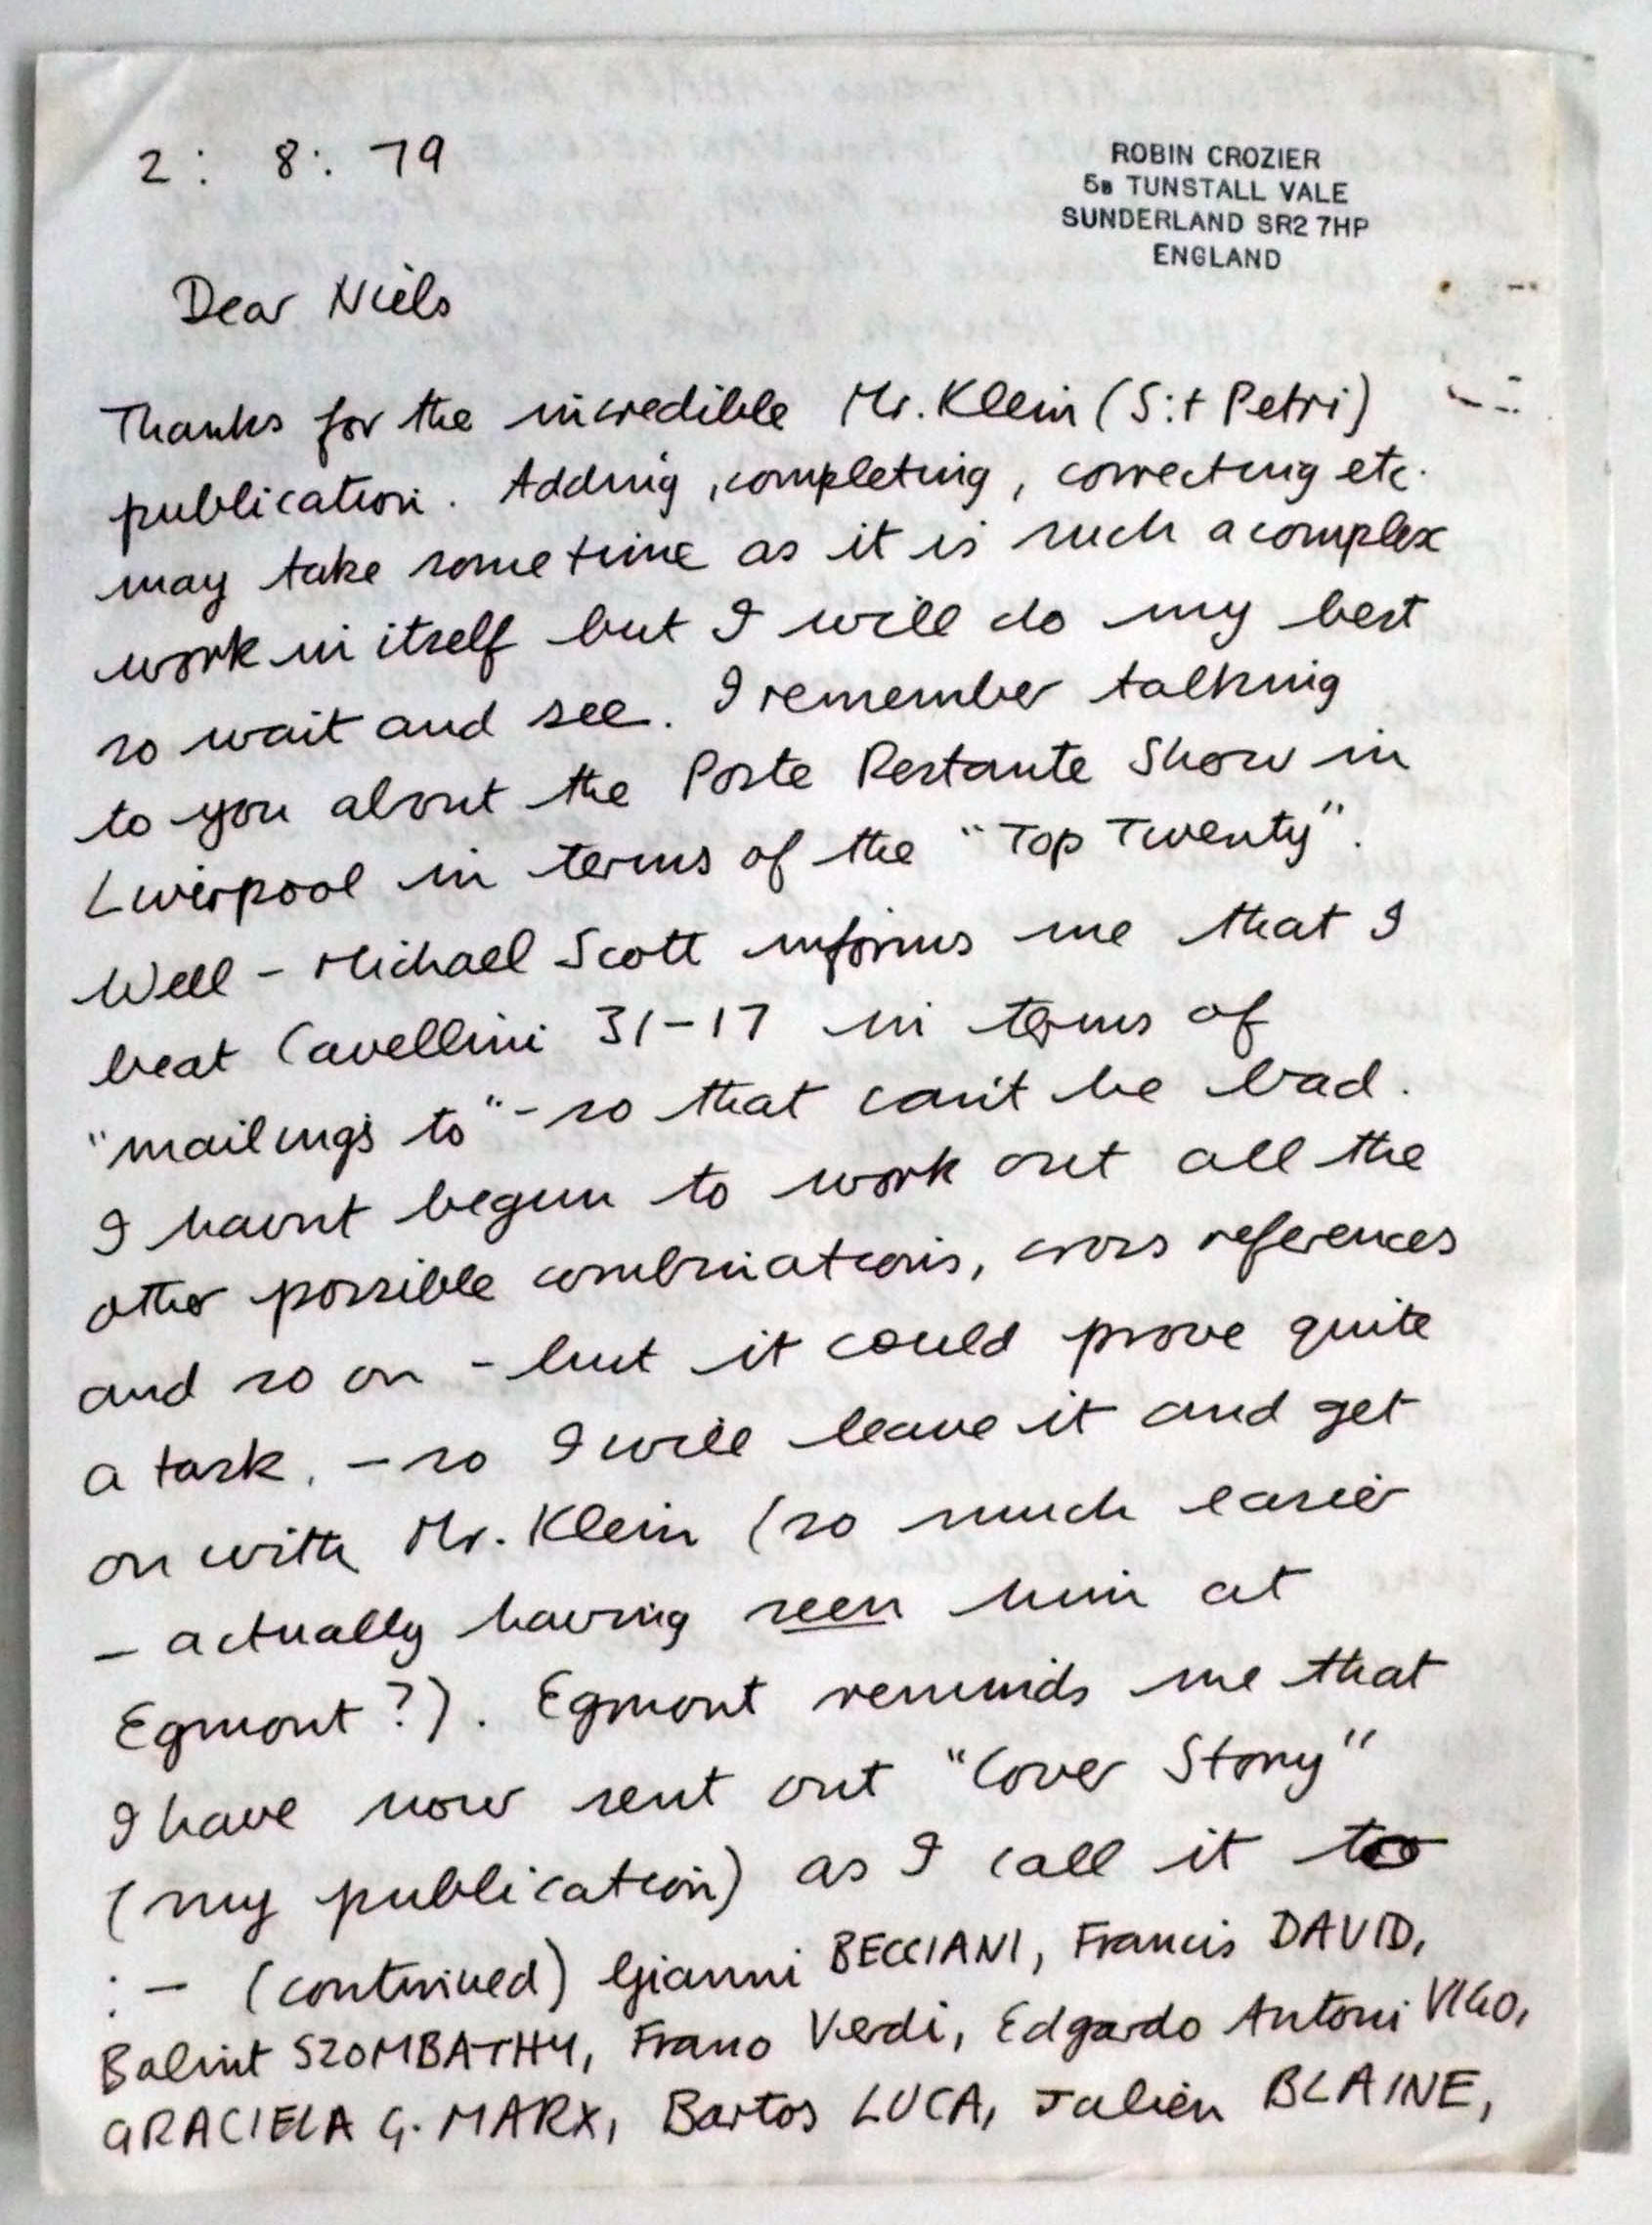 2: 8: 79
ROBIN CROZIER
5B TUNSTALL VALE
SUNDERLAND SR2 7HP
ENGLAND
Dear Niels
Thanks for the incredible Mr. Klein (S:t Petri)
publication. Adding, completing, correcting etc.
may take some time as it is such a complex
work in itself but I will do my best
so wait and see. I remember talking
to you about the Poste Restante Show in
Liverpool in terms of the "Top Twenty".
Well - Michael Scott informs me that I
beat Cavellini 31-17 in terms of
"mailings to" - so that can't be bad.
I havnt begun to work out all the
other possible combinations, cross references
and so on - but it could prove quite
a task. - so I will leave it and get
on with Mr. Klein (so much easier
- actually having seen him at
Egmont?). Egmont reminds me that
I have now sent out "Cover Story"
(my publication) as I call it to
:- (continued) Gianni BECCIANI, Francis DAVID,
Balint SZOMBATHY, Frano Verdi, Edgardo Antoni VIGO,
GRACIELA G. MARX, Bartos LUCA, Julien BLAINE,